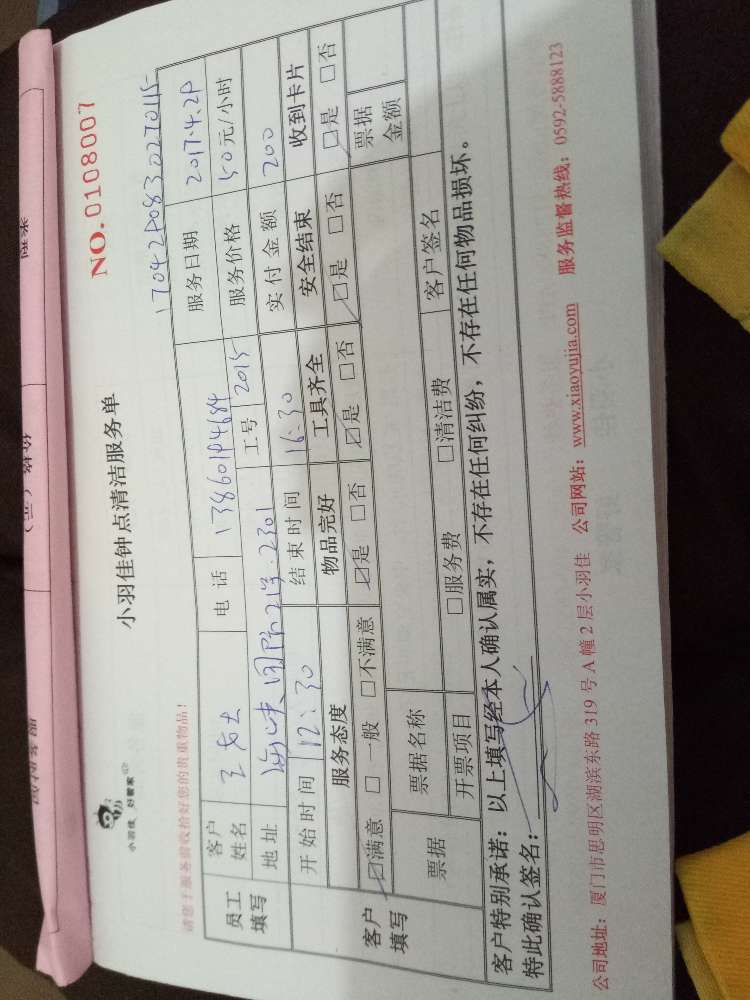 小羽佳 好管家
小羽佳钟点清洁服务单
NO.0108007
请您于服务前收拾好您的贵重物品!
17042908330270115
员工填写 客户姓名 王女士 电话 13860194684 服务日期 2017.4.29
地址 海峡国际2/3#.2301 工号 2015 服务价格 50元/小时
开始时间 12:30 结束时间 16:30 实付金额 200
客户填写 服务态度 物品完好 工具齐全 安全结束 收到卡片
☑满意 □一般 □不满意 ☑是 □否 ☑是 □否 ☑是 □否 ☑是 □否
票据 票据名称 票据金额
开票项目 □服务费 □清洁费 客户签名
客户特别承诺:以上填写经本人确认属实,不存在任何纠纷,不存在任何物品损坏。
特此确认签名:
公司地址:厦门市思明区湖滨东路319号A幢2层小羽佳 公司网站:www.xiaoyujia.com 服务监督热线:0592-5888123